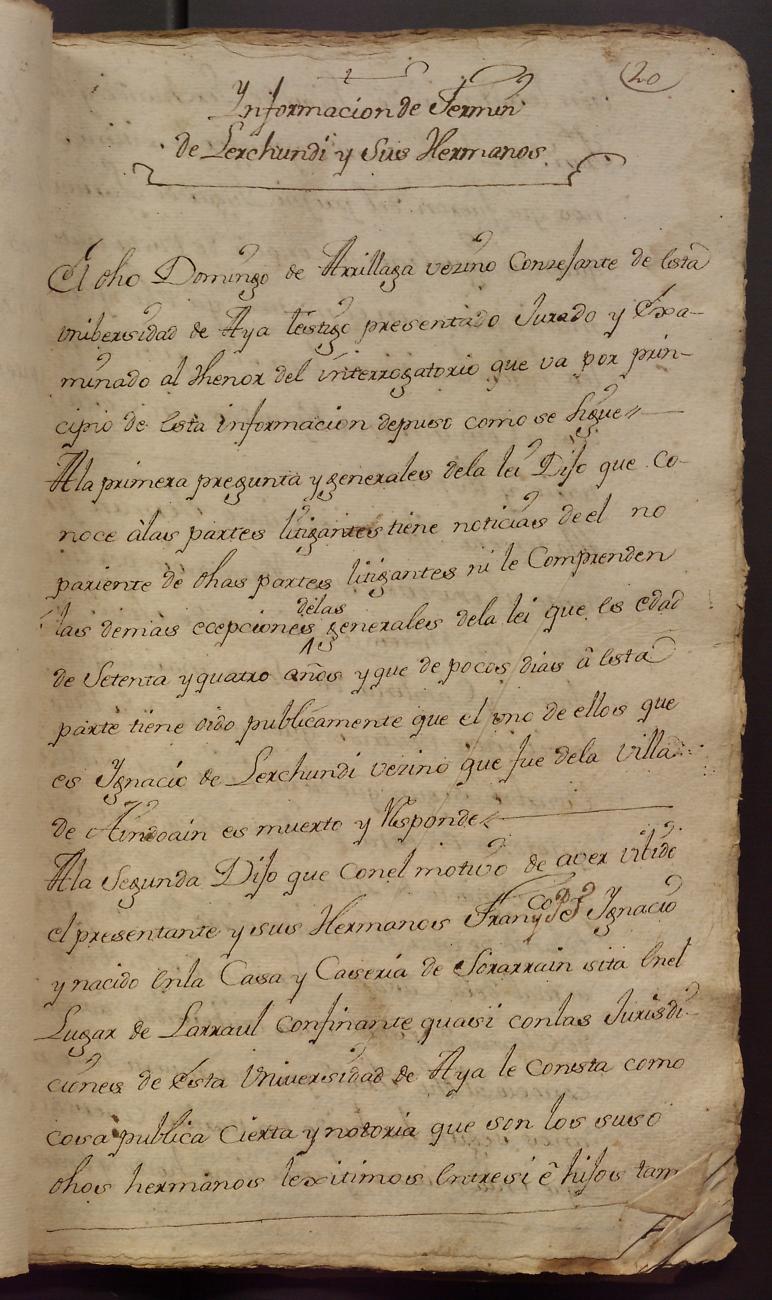 20
Ynformacion de Fermin
de Lerchundi y Sus Hermanos
El dho Domingo de Arrillaga vezino Conzejante de esta
Vnibersidad de Aya testigo presentado Jurado y Exa-
minado al thenor del interrogatorio que va por prin-
cipio de esta informacion depuso como se sigue
A la primera pregunta y generales dela lei Dijo que co-
noce àlas partes litigantes tiene noticias de el no
pariente de dhas partes litigantes ni le Comprenden
las demas ecepciones delas generales dela lei que es edad
de Setenta y quatro años y que de pocos dias â esta
parte tiene oido publicamente que el vno de ellos que
es Ygnacio de Lerchundi vezino que fue dela villa
de Aindoain es muerto y Responde
A la Segunda Dijo que conel motivo de aver vibido
el presentante y sus Hermanos Franco Ygnacio
y nacido enla Casa y Caseria de Sorarrain sita enel
Lugar de Larraul confinante quasi conlas Jurisdi-
ciones de Esta Vniversidad de Aya le consta como
cosa publica cierta y notoria que son los suso
dhos hermanos lexitimos entresi ê hijos tam